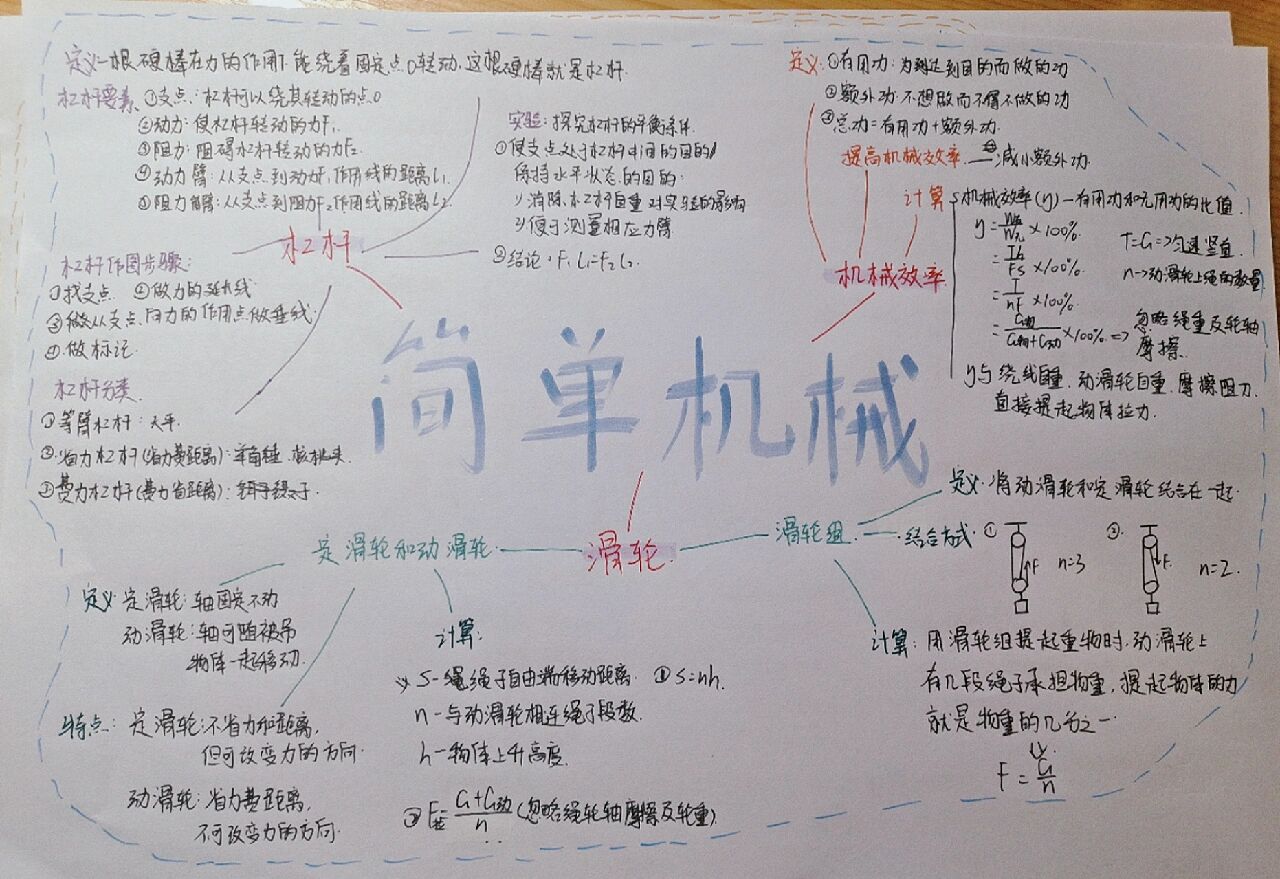 定义一根硬棒在力的作用下能绕着固定点O转动,这根硬棒就是杠杆.
杠杆要素 ①支点:杠杆可以绕其转动的点O
②动力:使杠杆转动的力F₁.
③阻力:阻碍杠杆转动的力F₂.
④动力臂:从支点到动力F₁作用线的距离L₁.
⑤阻力臂:从支点到阻力F₂作用线的距离L₂.
杠杆
杠杆作图步骤:
①找支点 ②做力的延长线
④做标记
杠杆分类
①等臂杠杆:天平.
②省力杠杆(省力费距离):羊角锤.核桃夹.
③费力杠杆(费力省距离):镊子.
实验:探究杠杆的平衡条件
①使支点处于杠杆中间的目的/
保持水平状态的目的
1)消除杠杆自重对实验的影响
2)便于测量相应力臂
②结论:F₁L₁=F₂L₂.
定义:①有用功:为到达到目的而做的功
②额外功:不想做而不得不做的功
③总功=有用功+额外功.
提高机械效率—减小额外功.
计算
机械效率(y)—有用功和无用功的比值.
y= ×100%.
= Th/FS ×100%
= T/nF ×100%
= G物/G物+G动 ×100% => 忽略绳重及轮轴摩擦.
T=G=>匀速竖直
n->动滑轮上绳的数量
y与绕线自重.动滑轮自重.摩擦阻力.
直接提起物体拉力.
机械效率
简单机械
滑轮
定滑轮和动滑轮
定义:定滑轮:轴固定不动
动滑轮:轴可随被吊
物体一起移动.
特点:定滑轮:不省力和距离,
但可改变力的方向
动滑轮:省力费距离,
不可改变力的方向.
计算:
S-绳子自由端移动距离. ①S=nh.
n-与动滑轮相连绳子段数.
h-物体上升高度.
②F=G+G动/n(忽略绳轮轴摩擦及轮重)
滑轮组
定义:将动滑轮和定滑轮结合在一起.
结合方式 ① F n=3 ② F. n=2.
计算:用滑轮组提起重物时,动滑轮上
有几段绳子承担物重,提起物体的力
就是物重的几分之一
F=G/n